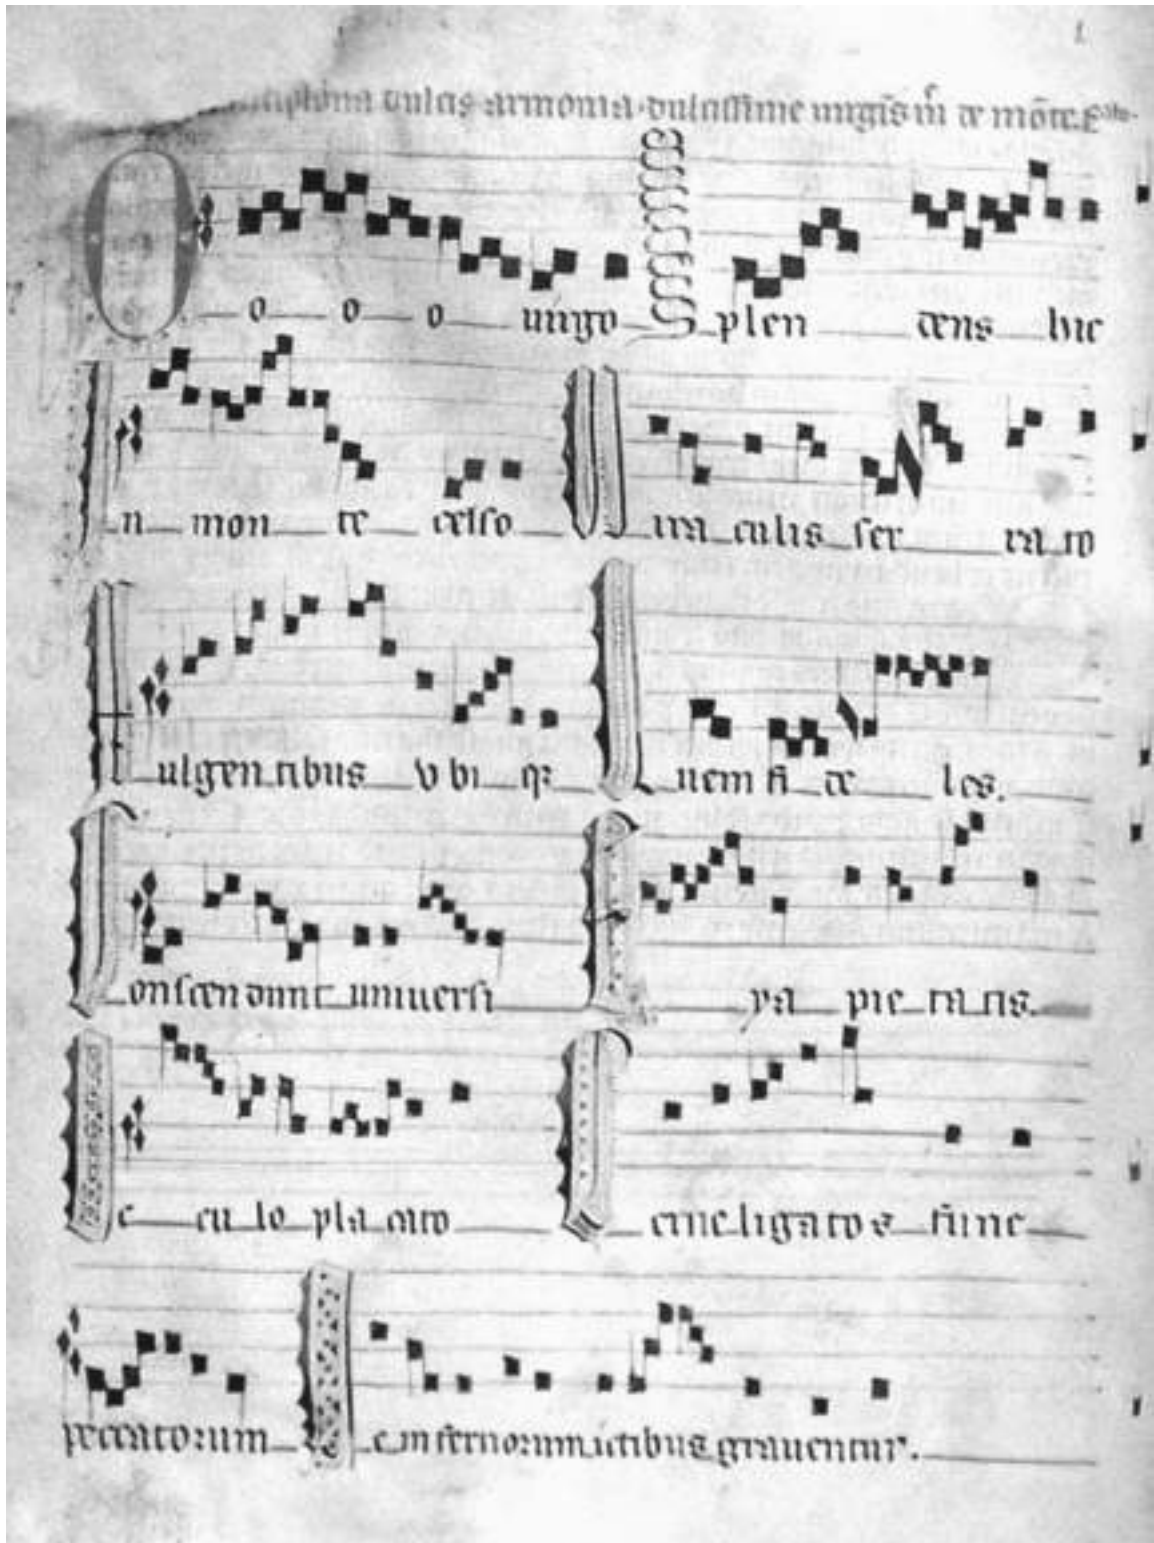 antiphona dulcis armonia. dulcissime uirgīs m̄ de mōte.
O o o o uirgo S plen dens hic
I n mon te celso M ira culis ser ra to
F ulgen tibus v bi qꝫ Q uem fi de les.
C onscen dunt uniuersi E ya pie ta tis.
O c cu lo pla cato C erne ligatos fune
peccatorum N e infernorum ictibus grauentur.